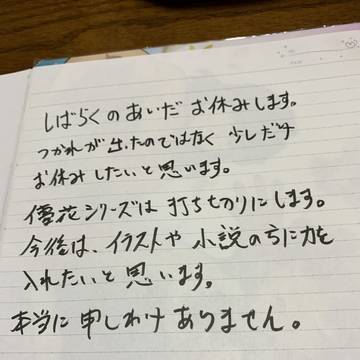 しばらくのあいだ お休みします。
つかれが出たのではなく 少しだけ
お休みしたいと思います。
優花シリーズは 打ち切りにします。
今後は、イラストや 小説の方に力を
入れたいと思います。
本当に 申しわけありません。